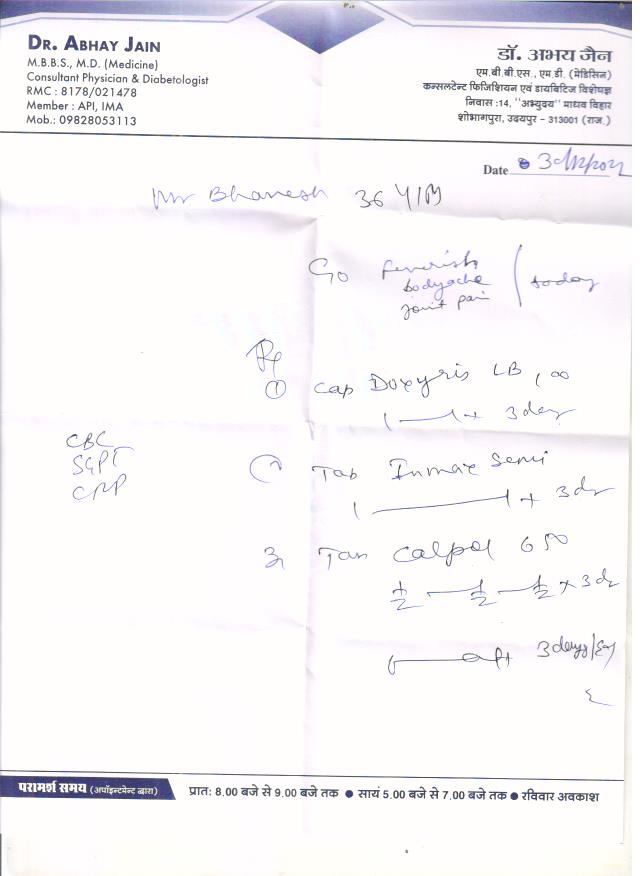 DR. ABHAY JAIN
M.B.B.S., M.D. (Medicine)
Consultant Physician & Diabetologist
RMC : 8178/021478
Member : API, IMA
Mob.: 09828053113
डॉ. अभय जैन
एम.बी.बी.एस., एम.डी. (मेडिसिन)
कन्सलटेन्ट फिजिशियन एवं डायबिटिज विशेषज्ञ
निवास :14, "अभ्युदय" माधव विहार
शोभागपुरा, उदयपुर - 313001 (राज.)
Date
Mr Bhanesh 36 Y/M
C/o feverish
bodyache
joint pain
today
Rx
① Cap Doxyris LB 100
1 — 1 × 3 day
CBC
SGPT
CRP
Tab Inmax Semi
1 — 1 × 3 d
3 Tab Calpol 650
½ — ½ — ½ × 3 d
3 days
परामर्श समय (अपॉइन्टमेन्ट द्वारा)
प्रात: 8.00 बजे से 9.00 बजे तक ● सायं 5.00 बजे से 7.00 बजे तक ● रविवार अवकाश